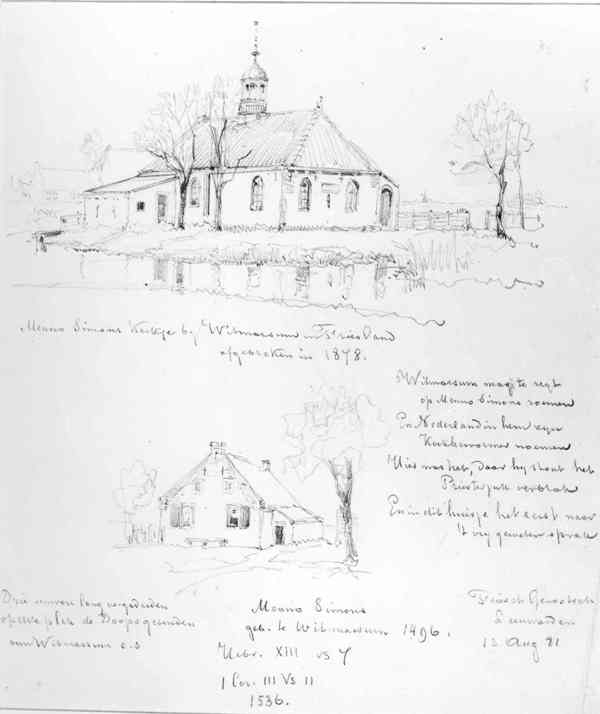 Menno Simons Kerkje bij Witmarsum in Friesland
afgebroken in 1878.
Witmarsum mag te regt
op Menno Simons roemen
En Nederland in hem zijn
Kerkhervormer noemen
Hier was het, daar hij stout het
Priesterjuk verbrak
En in dit huisje het eerst naar
't vrij geweten sprak
Drie eeuwen lang vergaderden
op deze plek de Doopsgezinden
van Witmarsum e.s
Menno Simons
geb. te Witmarsum 1496.
Hebr. XIII vs 7
1 Cor. III Vs 11
1536.
Friesch Genootsch
Leeuwarden
13 Aug 81